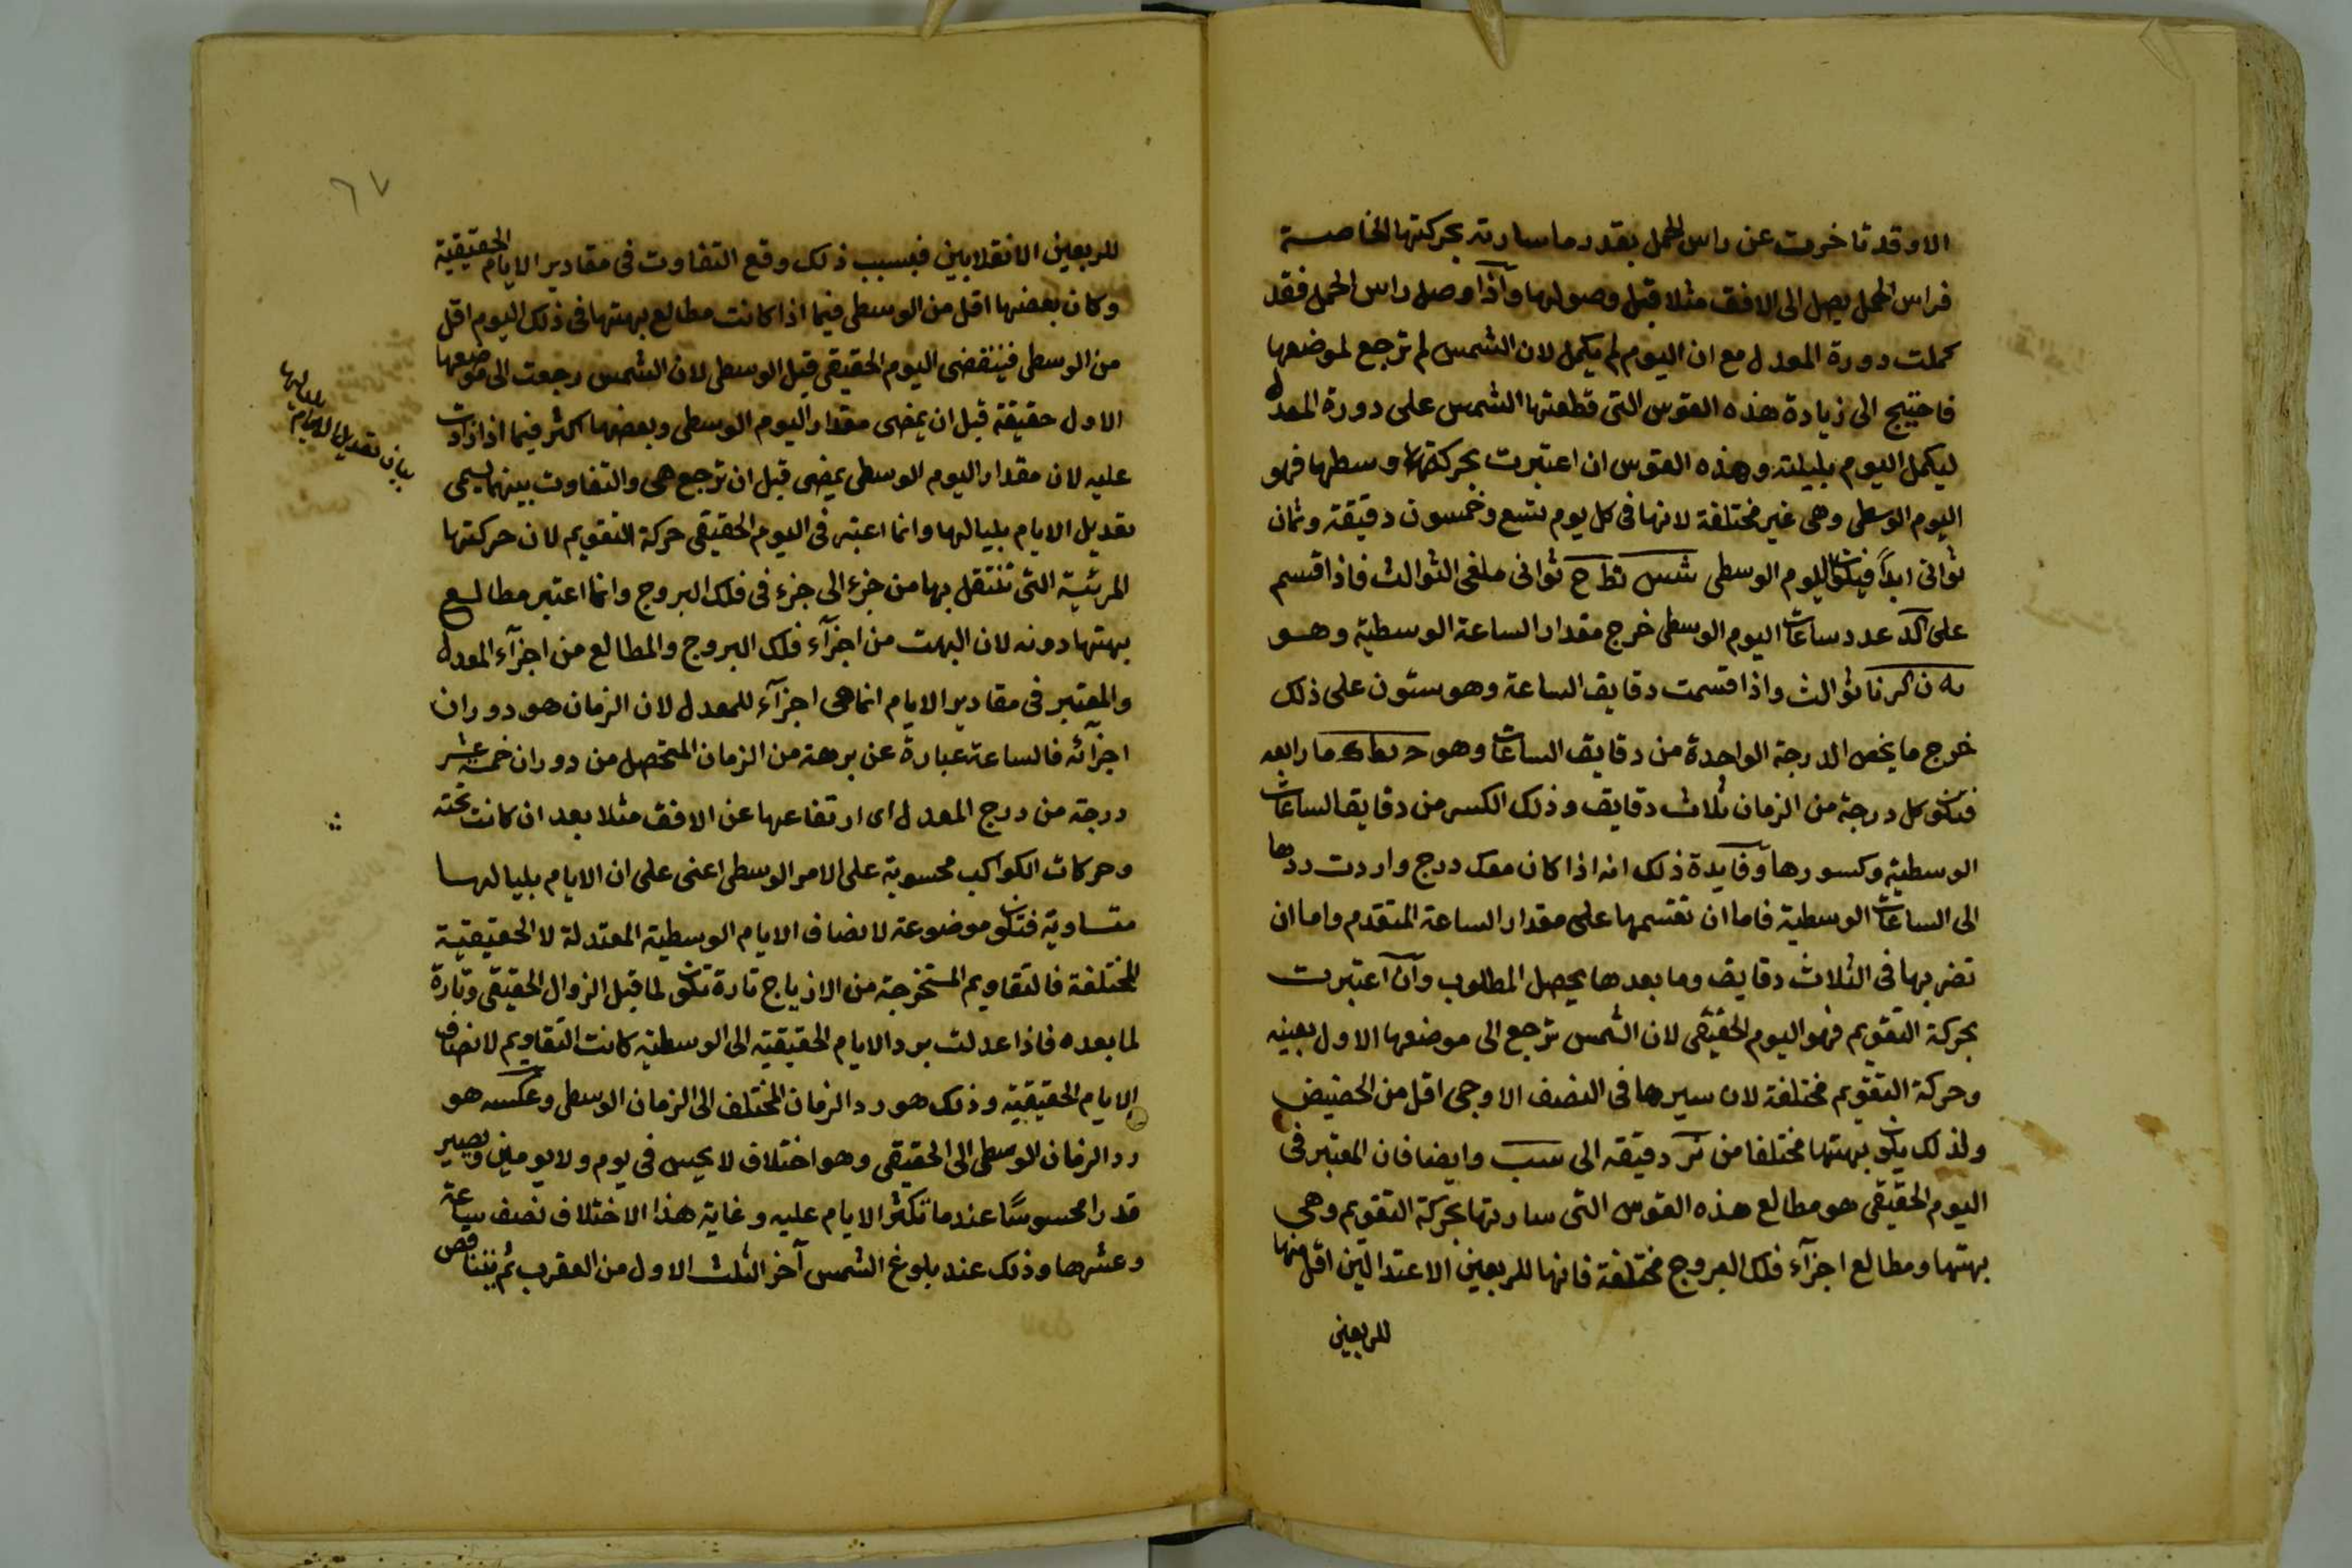 الا وقد تاخرت عن راس الحمل بقدر ما سارته بحركتها الخاصة
فراس الحمل يصل الى الافق مثلا قبل وصولها واذا وصل راس الحمل فقد
كملت دورة المعدل مع ان اليوم لم يكمل لان الشمس لم ترجع لموضعها
فاحتيج الى زيادة هذه القوس التى قطعتها الشمس على دورة المعدل
ليكمل اليوم بليلته وهذه القوس ان اعتبرت بحركتها وسطها فهو
اليوم الوسطى وهى غير مختلفة لانها فى كل يوم تسع وخمسون دقيقة وثمان
ثوانى ابداً فيكون اليوم الوسطى شس نط ح ثوانى ملغى الثوالث فاذا قسم
على كد عدد ساعات اليوم الوسطى خرج مقدار الساعة الوسطية وهو
يه ن كر نا ثوالث واذا قسمت دقايق الساعة وهو ستون على ذلك
خرج ما يخص الدرجة الواحدة من دقايق الساعات وهو رابعه
فيكون كل درجة من الزمان ثلاث دقايق وذلك الكسر من دقايق الساعات
الوسطية وكسورها وفايدة ذلك انه اذا كان معك درج واردت ردها
الى الساعات الوسطية فاما ان تقسمها على مقدار الساعة المتقدم واما ان
تضربها فى الثلاث دقايق وما بعدها يحصل المطلوب وان اعتبرت
بحركة التقويم فهو اليوم الحقيقى لان الشمس ترجع الى موضعها الاول بعينه
وحركة التقويم مختلفة لان سيرها فى النصف الاوجى اقل من الحضيض
ولذلك يكون بهتها مختلفا من نر دقيقه الى سب وايضا فان المعتبر فى
اليوم الحقيقى هو مطالع هذه القوس التى سارتها بحركة التقويم وهى
بهتها ومطالع اجزآء فلك البروج مختلفة فانها للربعين الاعتدالين اقل منها
للربعين
٦٧
للربعين الانقلابين فبسبب ذلك وقع التفاوت فى مقادير الايام الحقيقية
وكان بعضها اقل من الوسطى فيما اذا كانت مطالع بهتها فى ذلك اليوم اقل
من الوسطى فينقضى اليوم الحقيقى قبل الوسطى لان الشمس رجعت الى موضعها
الاول حقيقة قبل ان يمضى مقدار اليوم الوسطى وبعضها اكثر فيما اذا زادت
عليه لان مقدار اليوم الوسطى يمضى قبل ان ترجع هى والتفاوت بينهما يسمى
تعديل الايام بلياليها وانما اعتبر فى اليوم الحقيقى حركة التقويم لان حركتها
المرئية التى تنتقل بها من جزء الى جزء فى فلك البروج وانما اعتبر مطالع
بهتها دونه لان البهت من اجزآء فلك البروج والمطالع من اجزآء المعدل
والمعتبر فى مقادير الايام انما هى اجزآء للمعدل لان الزمان هو دوران
اجزآئه فالساعة عبارة عن برهة من الزمان المتحصل من دوران خمسة عشر
درجة من درج المعدل اى ارتفاعها عن الافق مثلا بعد ان كانت تحته
وحركات الكواكب محسوبة على الامر الوسطى اعنى على ان الايام بلياليها
متساوية فتكون موضوعة لانصاف الايام الوسطية المعتدلة لا الحقيقية
المختلفة فالتقاويم المستخرجة من الازياج تارة تكون لما قبل الزوال الحقيقى وتارة
لما بعده فاذا عدلت برد الايام الحقيقية الى الوسطية كانت التقاويم لانصاف
الايام الحقيقية وذلك هو رد الزمان المختلف الى الزمان الوسطى وعكسه هو
رد الزمان الوسطى الى الحقيقى وهو اختلاف لا يحس فى يوم ولا يومين ويصير
قدرا محسوسًا عندما تكثر الايام عليه وغاية هذا الاختلاف نصف ساعة
وعشرها وذلك عند بلوغ الشمس آخر الثلث الاول من العقرب ثم يتناقص
بيان تعديل الايام بلياليها